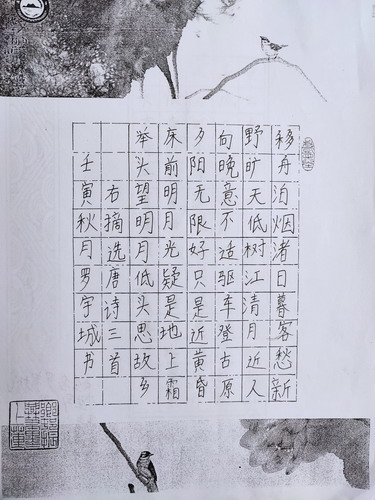 移舟泊烟渚日暮客愁新
野旷天低树江清月近人
向晚意不适驱车登古原
夕阳无限好只是近黄昏
床前明月光疑是地上霜
举头望明月低头思故乡
右摘选唐诗三首
壬寅秋月罗宇城书